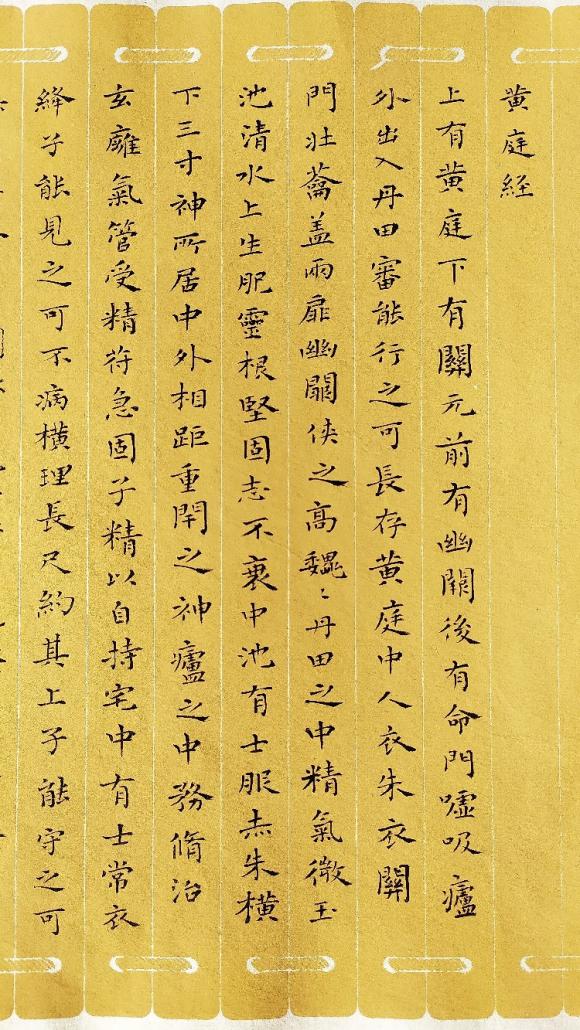 黄庭経
上有黄庭下有關元前有幽闕後有命門嘘吸廬
外出入丹田審能行之可長存黄庭中人衣朱衣關
門壯蘥盖兩扉幽闕侠之高巍〻丹田之中精氣微玉
池清水上生肥靈根堅固志不衰中池有士服赤朱横
下三寸神所居中外相距重閇之神廬之中務脩治
玄廱氣管受精符急固子精以自持宅中有士常衣
絳子能見之可不病横理長尺約其上子能守之可